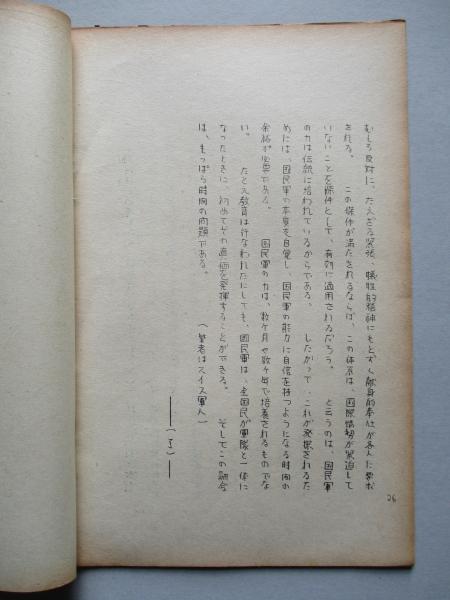 むしろ反対に、たえざる緊張、犠牲的精神にもとずく献身的奉仕が各人に要求
される。　この条件が満たされるならば、この体系は、国際情勢が緊迫して
いないことを条件として、有効に適用されるだろう。　と云うのは、国民軍
の力は伝統に培われているからである。　したがって、これが発揮されるた
めには、国民軍の本質を自覚し、国民軍の能力に自信を持つようになる時間の
余裕が必要である。　国民軍の力は、数ヶ月や数ヶ年で培養されるものでな
い。　たとえ教育は行なわれたにしても、国民軍は、全国民が軍隊と一体に
なったときに、初めてその真価を発揮することができる。　そしてこの融合
は、もっぱら時間の問題である。
（筆者はスイス軍人）
――（了）――
26